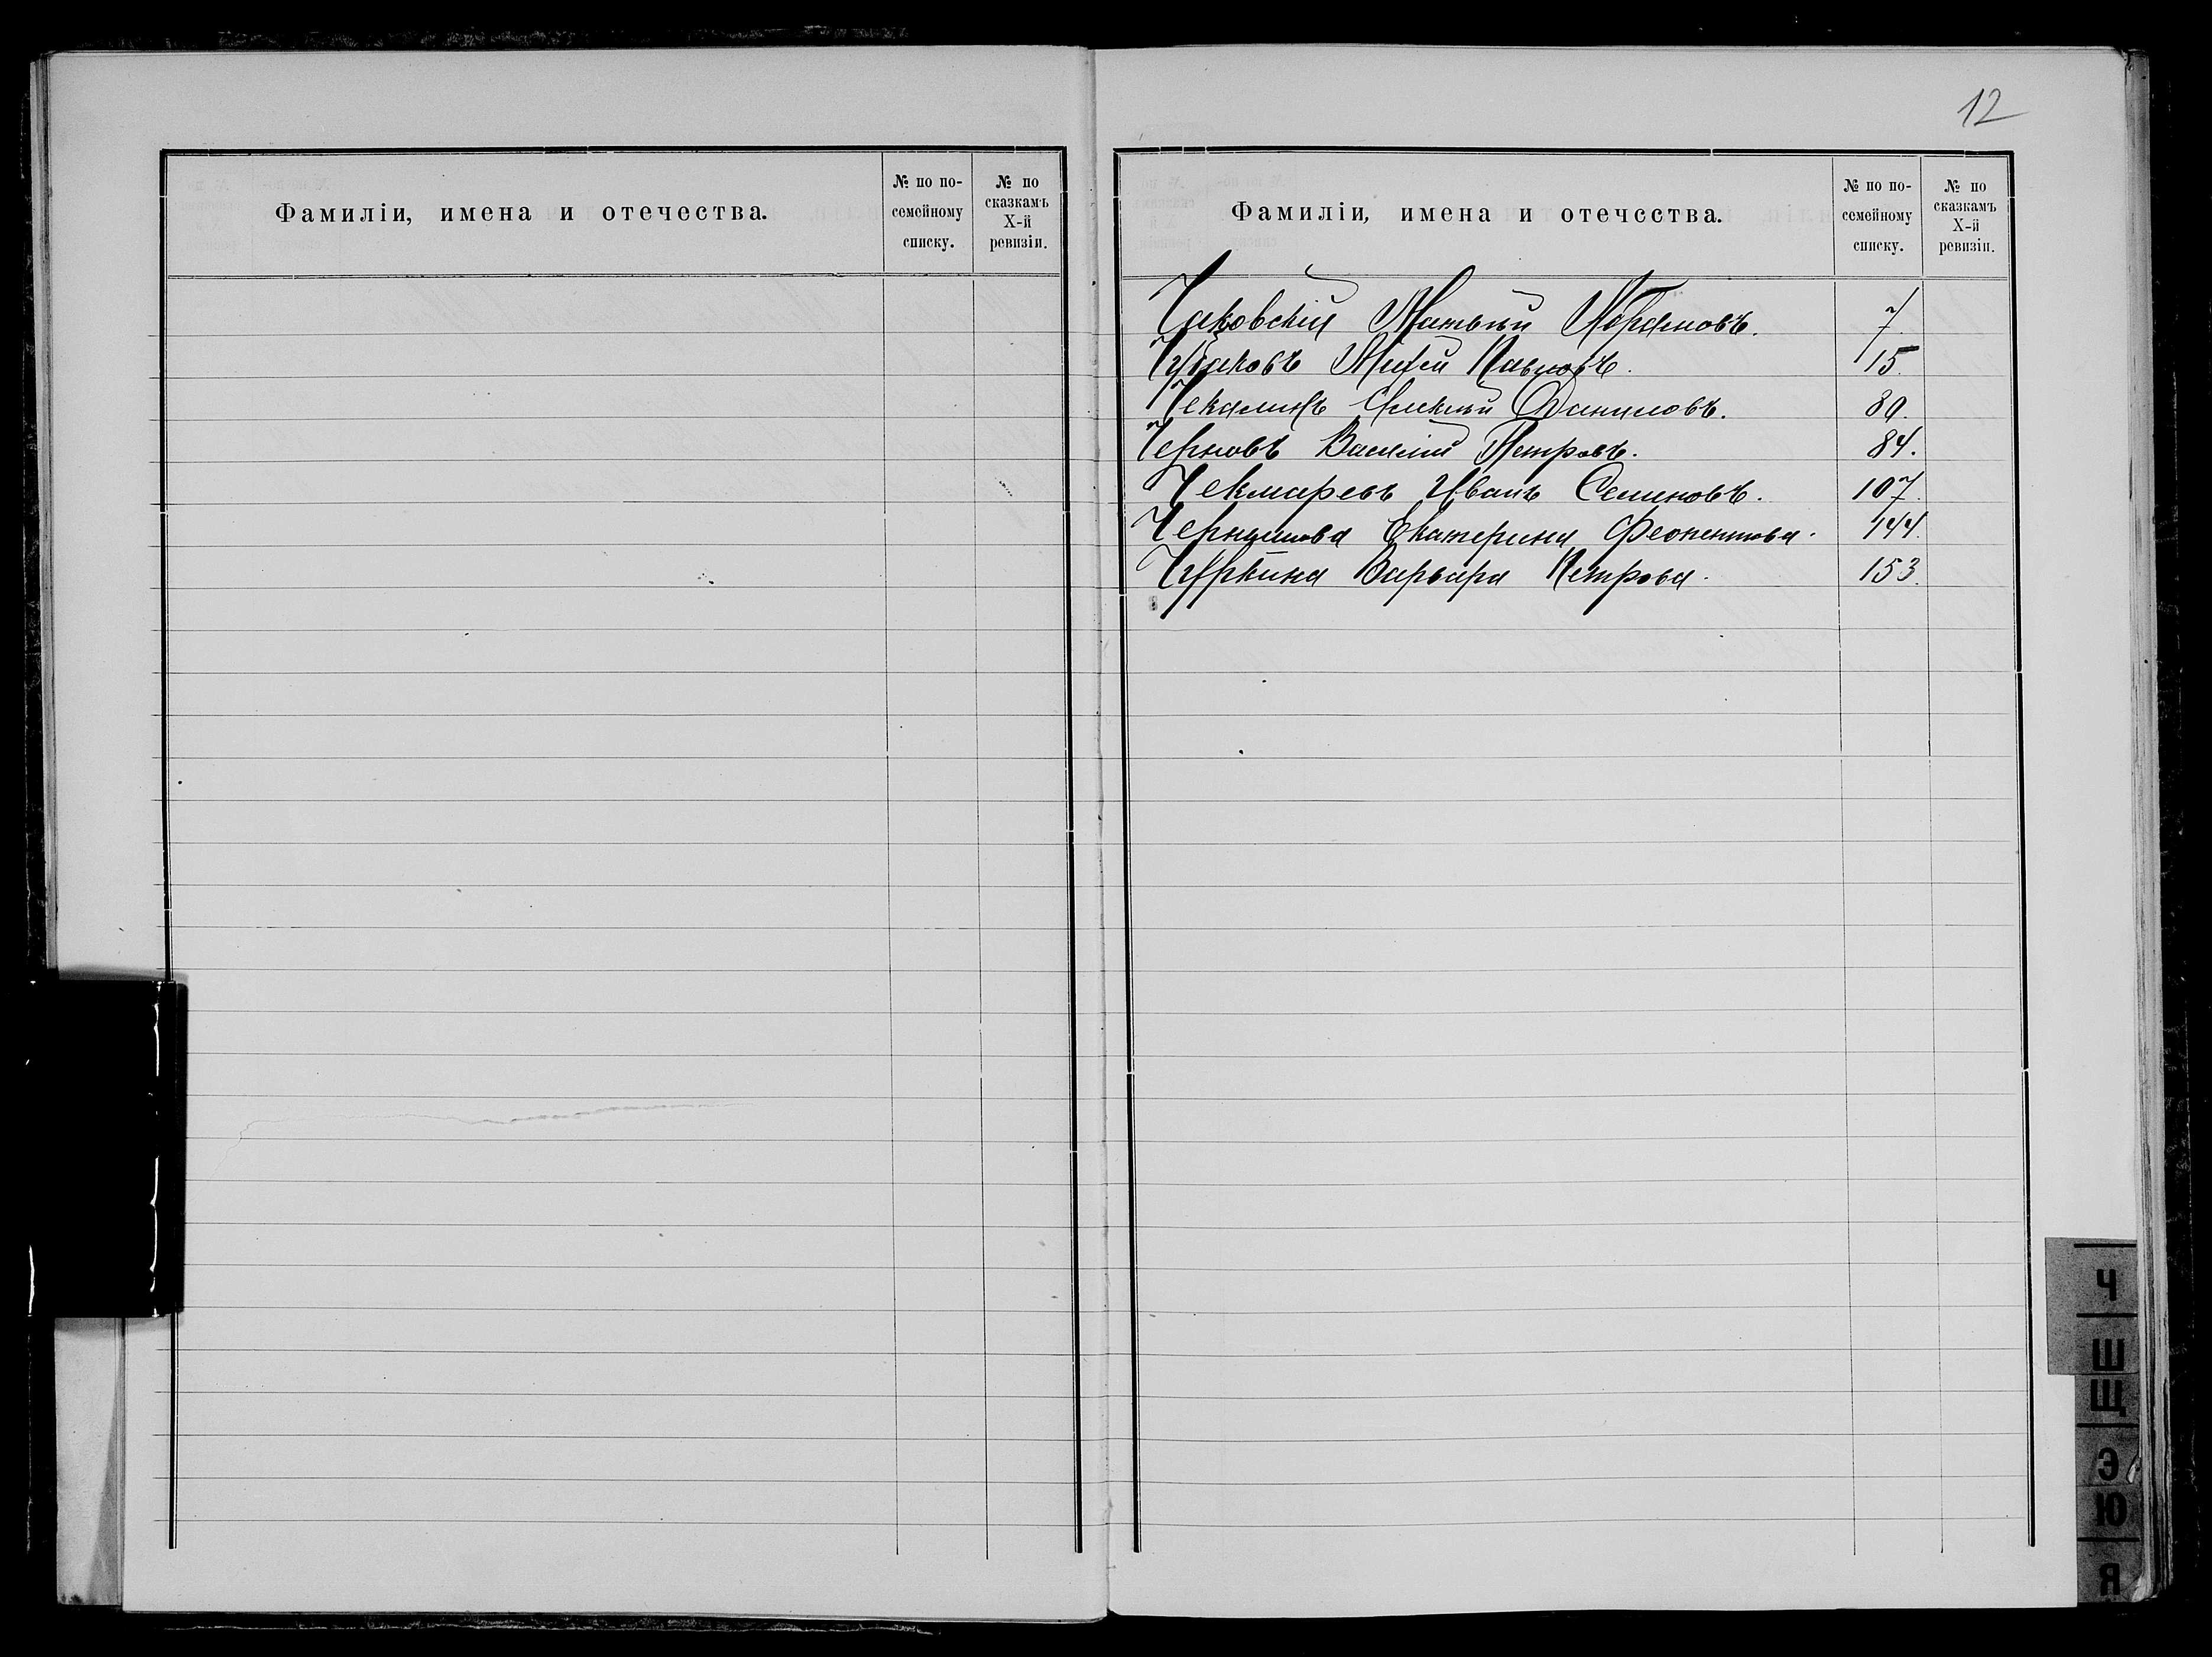 12
Фамиліи, имена и отечества.
№ по по-
семейному
списку.
№ по
сказкамъ
X-й
ревизіи.
Фамиліи, имена и отечества.
№ по по-
семейному
списку.
№ по
сказкамъ
X-й
ревизіи.
Чаковскій Матвѣй 7.
Павловъ. 15.
Чекалинъ Алексѣй Даниловъ. 80.
Черновъ Василій Петровъ. 84.
Чекмаревъ Иванъ Семеновъ. 107.
Екатерина 144.
Чуркина Варвара Петрова. 153.
Ч
Ш
Щ
Э
Ю
Я